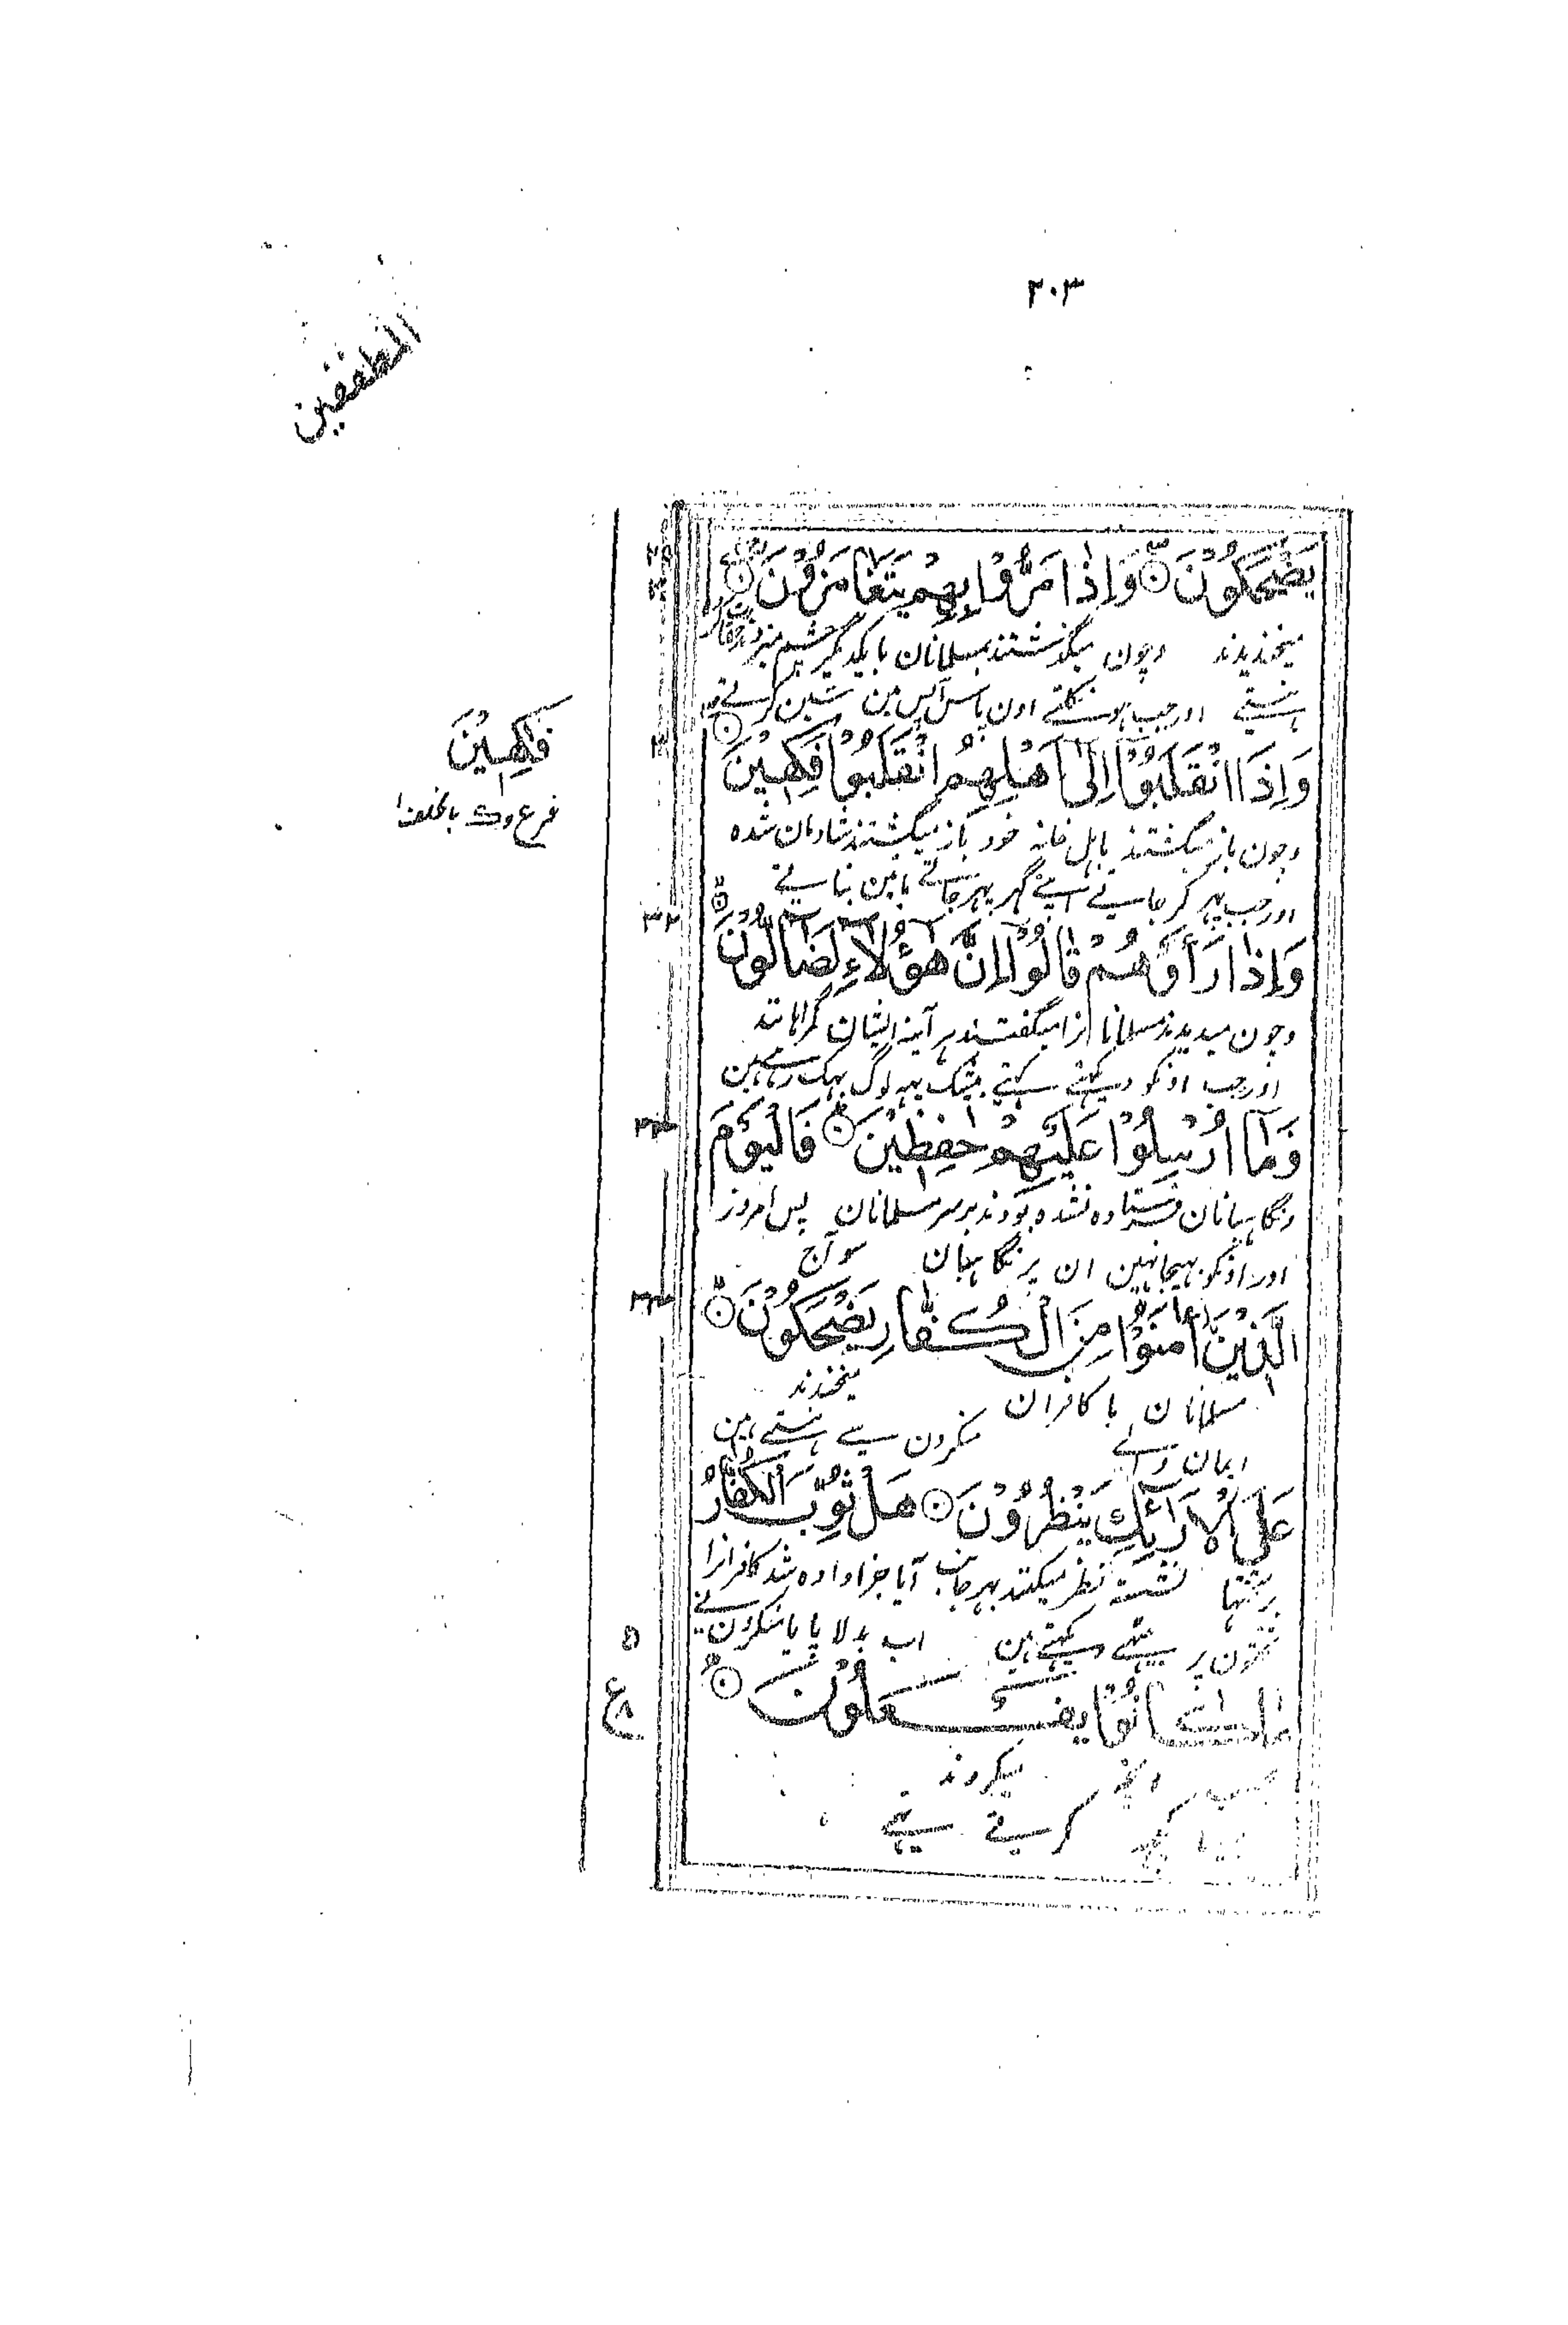 ۲۰۳
المطففين
يَضْحَكُوْنَ ۞ وَاِذَا مَرُّوْا بِهِمْ يَتَغَامَزُوْنَ ۞
میخندیدند وچون میگذشتند بمسلمانان بایکدیگر چشم میزدند
ہنستے اور جب ہو نکلتے اون پاس آپس مین سَین کرتے
وَاِذَا انْقَلَبُوْٓا اِلٰٓى اَهْلِهِمُ انْقَلَبُوْا فَكِهِيْنَ ۞
وچون باز میگشتند باہل خانہ خود باز میگشتند شادمان شدہ
اور جب پہر کر جاتے اپنے گہر پہر جاتے باتین بناتے
فٰكِهِيْنَ
وَاِذَا رَاَوْهُمْ قَالُوْٓا اِنَّ هٰٓؤُلَآءِ لَضَآلُّوْنَ ۞
وچون میدیدند مسلمانانرا میگفتند ہر آینہ ایشان گمراہانند
اور جب اونکو دیکہتے کہتے بیشک یہہ لوگ بہک رہے ہین
وَمَآ اُرْسِلُوْا عَلَيْهِمْ حٰفِظِيْنَ ۞ فَالْيَوْمَ
ونگاہبانان فرستادہ نشدہ بودند برسر مسلمانان پس امروز
اور اونکو بہیجا نہین ان پر نگاہبان سو آج
الَّذِيْنَ اٰمَنُوْا مِنَ الْكُفَّارِ يَضْحَكُوْنَ ۞
مسلمانان با کافران میخندند
ایمان والے منکرون سے ہنستے ہین
عَلَى الْاَرَآئِكِ يَنْظُرُوْنَ ۞ هَلْ ثُوِّبَ الْكُفَّارُ
برتختہا نشستہ نظر میکنند بہر جانب آیا جزا دادہ شد کافرانرا
تختون پر بیٹہے دیکہتے ہین اب بدلا پایا منکرون نے
مَا كَانُوْا يَفْعَلُوْنَ ۞
میکردند
کرتے تہے
ع